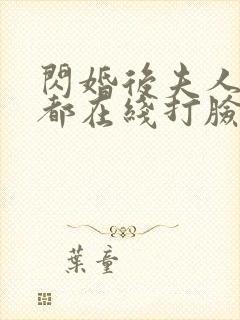 閃婚後夫人
都在綫打臉
葉童